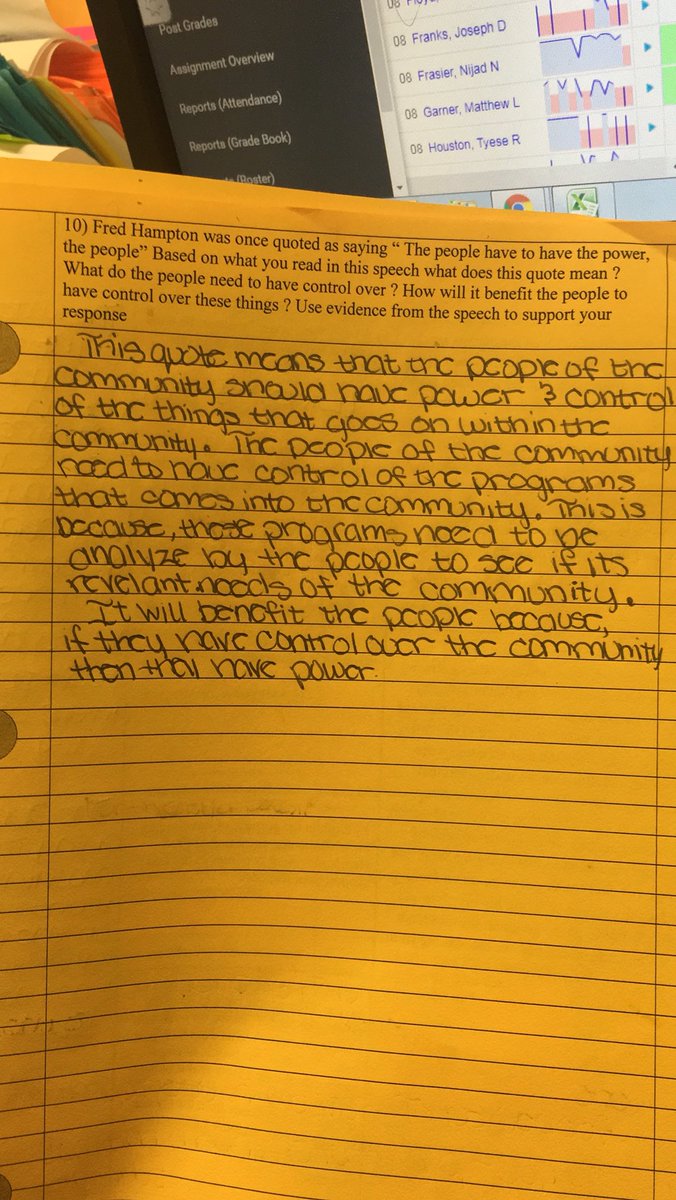 Post Grades
Assignment Overview
Reports (Attendance)
Reports (Grade Book)
(Roster)
08
08 Franks, Joseph D
08 Frasier, Nijad N
08 Garner, Matthew L
08 Houston, Tyese R
10) Fred Hampton was once quoted as saying “ The people have to have the power,
the people” Based on what you read in this speech what does this quote mean ?
What do the people need to have control over ? How will it benefit the people to
have control over these things ? Use evidence from the speech to support your
response
This quote means that the people of the
community should have power & control
of the things that goes on within the
community. The people of the community
need to have control of the programs
that comes into the community. This is
because, those programs need to be
analyze by the people to see if its
revelant needs of the community.
It will benefit the people because,
if they have control over the community
then they have power.